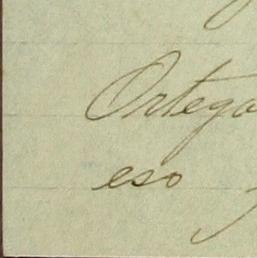 Ortega
eso